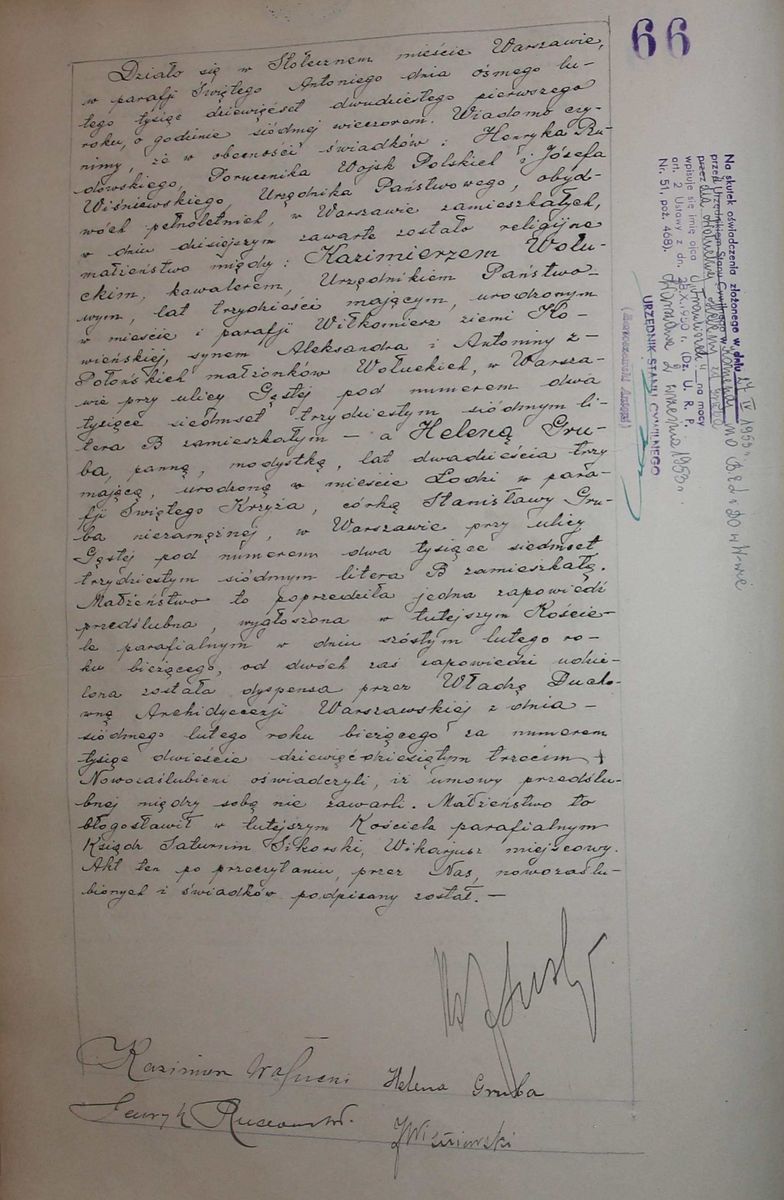 66
Działo się w Stołecznem mieście Warszawie,
w parafji Świętego Antoniego dnia ósmego lu-
tego tysiąc dziewięćset dwudziestego pierwszego
roku, o godzinie siódmej wieczorem. Wiadomo czy-
nimy, że w obecności świadków: Henryka Ru-
dowskiego, Porucznika Wojsk Polskich i Józefa
Wiśniewskiego, Urzędnika Państwowego, obyd-
wóch pełnoletnich, w Warszawie zamieszkałych,
w dniu dzisiejszym zawarte zostało religijne
małżeństwo między: Kazimierzem Wołu-
ckim, kawalerem, Urzędnikiem Państwo-
wym, lat trzydzieści mającym, urodzonym
w mieście i parafji Wiłkomierz ziemi Ko-
wieńskiej, synem Aleksandra i Antoniny z-
Połońskich małżonków Wołuckich, w Warsza-
wie przy ulicy Gęstej pod numerem dwa
tysiące siedmset trzydziestym siódmym li-
tera B zamieszkałym — a Heleną Gru-
ba, panną, modystką, lat dwadzieścia trzy
mającą, urodzoną w mieście Łodzi w para-
fji Świętego Krzyża, córką Stanisławy Gru-
ba niezamężnej, w Warszawie przy ulicy
Gęstej pod numerem dwa tysiące siedmset
trzydziestym siódmym litera B zamieszkałą.
Małżeństwo to poprzedziła jedna zapowiedź
przedślubna, wygłoszona w tutejszym Koście-
le parafialnym w dniu szóstym lutego ro-
ku bieżącego, od dwóch zaś zapowiedzi udzie-
lona została dyspensa przez Władzę Ducho-
wną Archidyecezji Warszawskiej z dnia —
siódmego lutego roku bieżącego za numerem
tysiąc dwieście dziewięćdziesiątym trzecim
Nowozaślubieni oświadczyli, iż umowy przedślu-
bnej między sobą nie zawarli. Małżeństwo to
błogosławił w tutejszym Kościele parafialnym
Ksiądz Saturnin Sikorski, Wikarjusz miejscowy.
Akt ten po przeczytaniu, przez Nas, nowozaślu-
bionych i świadków podpisany został. —
Kazimierz Wołucki Helena Gruba
Henryk JWiśniewski
Na skutek oświadczenia złożonego w dniu 17 IV 1953 r.
przed Urzędnikiem Stanu Cywilnego w
przez
wpisuje się imię ojca na mocy
art. 2 Ustawy z dn. X. 1950 r. (Dz. U. R. P.
Nr. 51, poz. 468). Warszawa 2 1953 r.
URZĘDNIK STANU CYWILNEGO